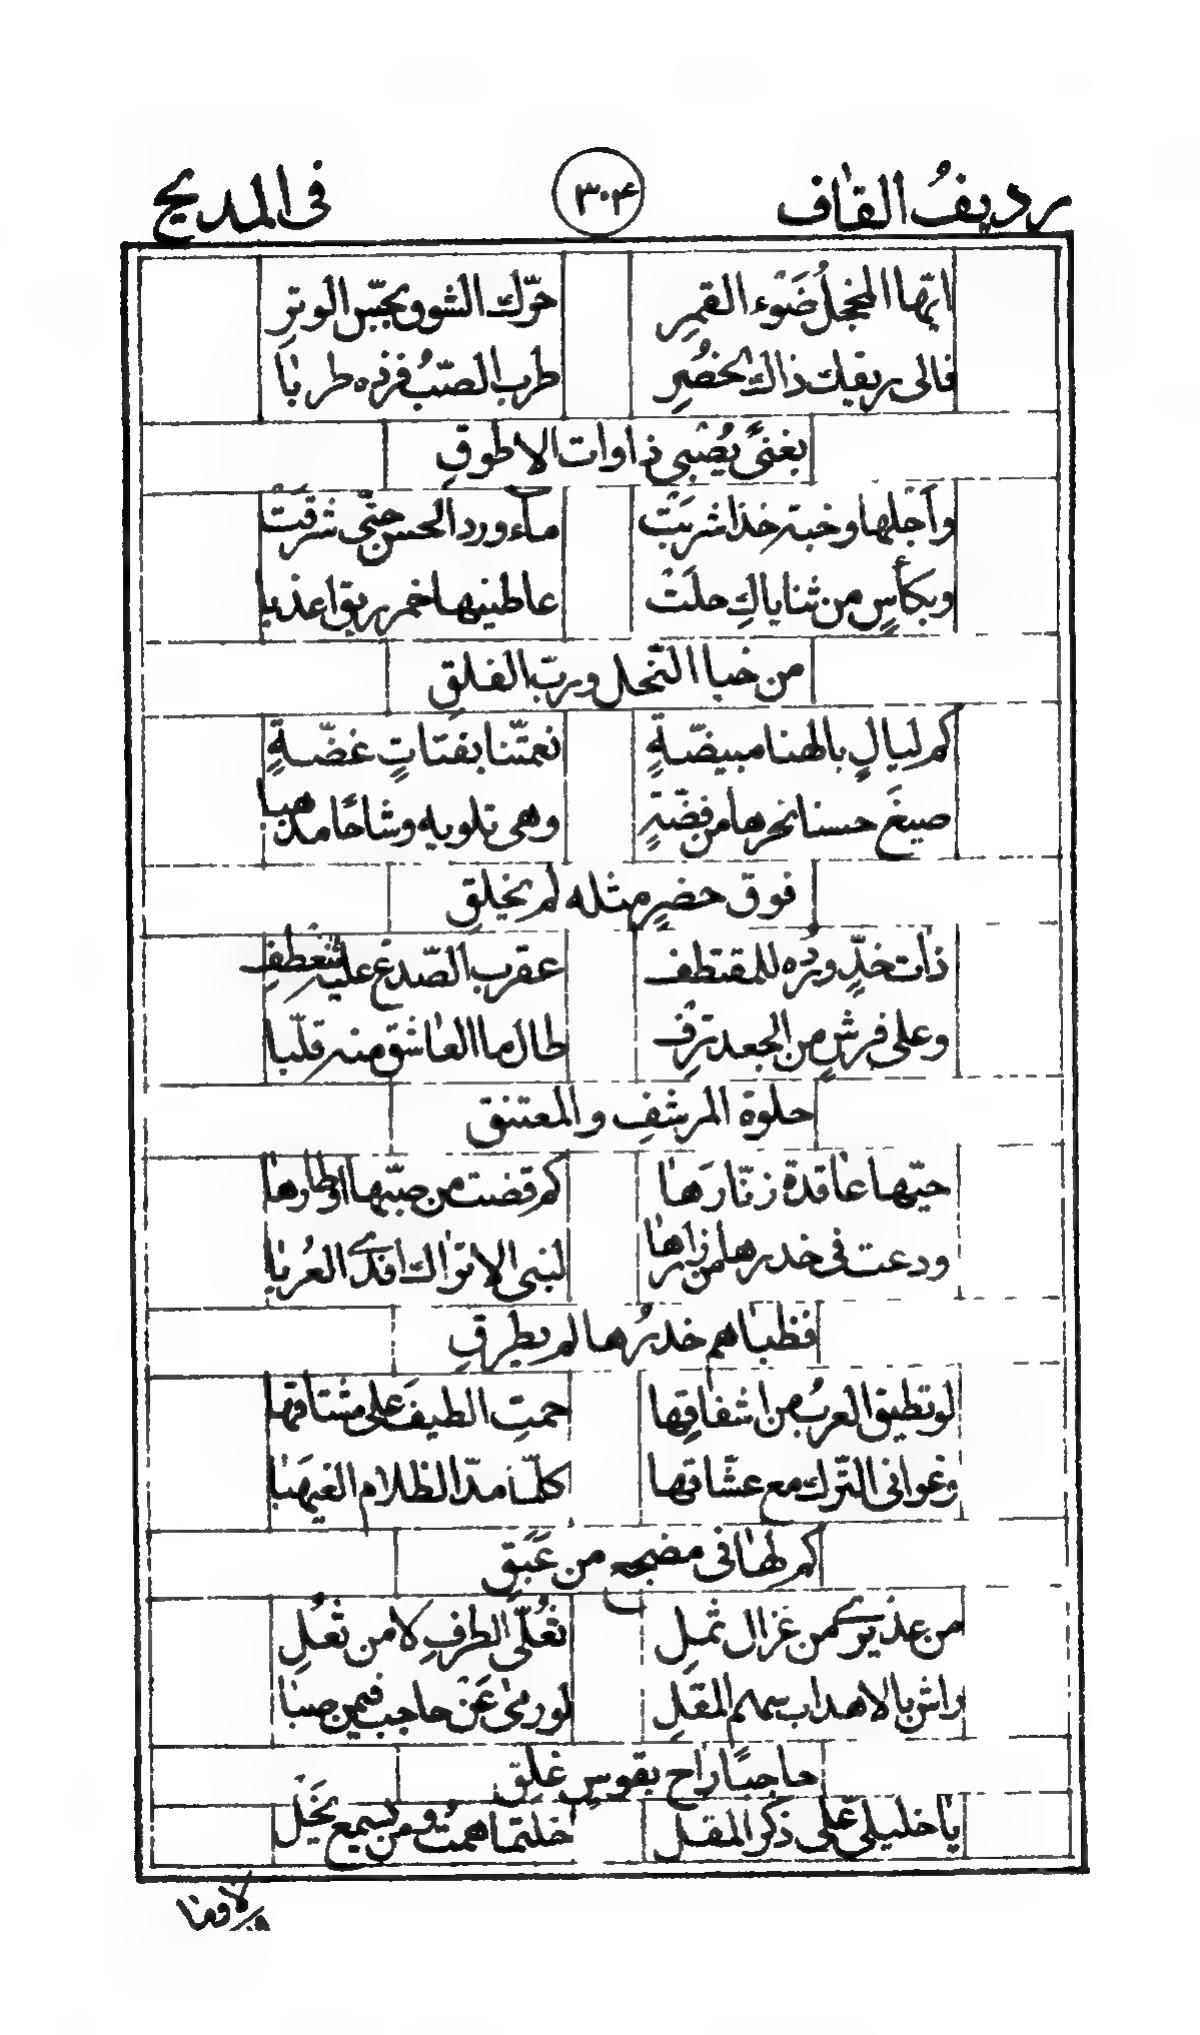 رديفُ القٰاف ٣٠۴ فى المديح
ايّها المخجلُ ضَوْء القمرِ حرّك الشوق بجسّ الوترِ
فالى ريقك ذاك الخضرِ طرب الصّبُ فزده طربٰا
بغنىً يُصْبى ذوات الاطوقِ
وآجْلها وجنة خد اشربَتْ مآء ورد الحسن حتّى شرقَتْ
وبكأسٍ من ثناياكِ حلَتْ عاطنيها خمر ريق اعذبا
من خبا النّحل وربّ الفلقِ
كم ليالٍ بالهنا مبيضّةٍ نعمّتنا بفتاتٍ غضّةٍ
صيغَ حسنا نحرها من فضّةٍ وهى تلويه وشاحًا مذهبا
فوق حضرٍ مثله لم يخلقِ
ذات خدٍّ وردُه للمقتطف عقرب الصّدغ عليه تنعطفِ
وعلى فرشٍ من الجعد ترف طال ما العٰاشق منه قلّبا
حلوة المرشفِ والمعتنق
حيّها عٰاقدة زنّارَهٰا كم قضت من صبّها اوطارهٰا
ودعت فى خدرها من زارهٰا لبنى الاترٰاك افدى العُربٰا
فظبٰاهم خدرُها لم يطرقِ
لو تطيق العربُ من اشفٰاقِها حمتِ الطيفَ على مشتاقها
وغوانى التّرك مع عشّاقها كلّمٰا مدّ الظلام الغيهبٰا
كم لهٰا فى مضجعه من عَبَقِ
من عذيرى من غزالٍ ثملِ ثُعَلّىّ الطرفِ لا من ثُعَلِ
راش بالاهداب سهم المقَلِ لو رمىٰ عَنْ حاجب فيمن صبٰا
حاجبًا رٰاح بقوسٍ غلقِ
يٰا خليلىّ علٰى ذكر المقل خلتما همتُ ومن يسمع يخَلْ